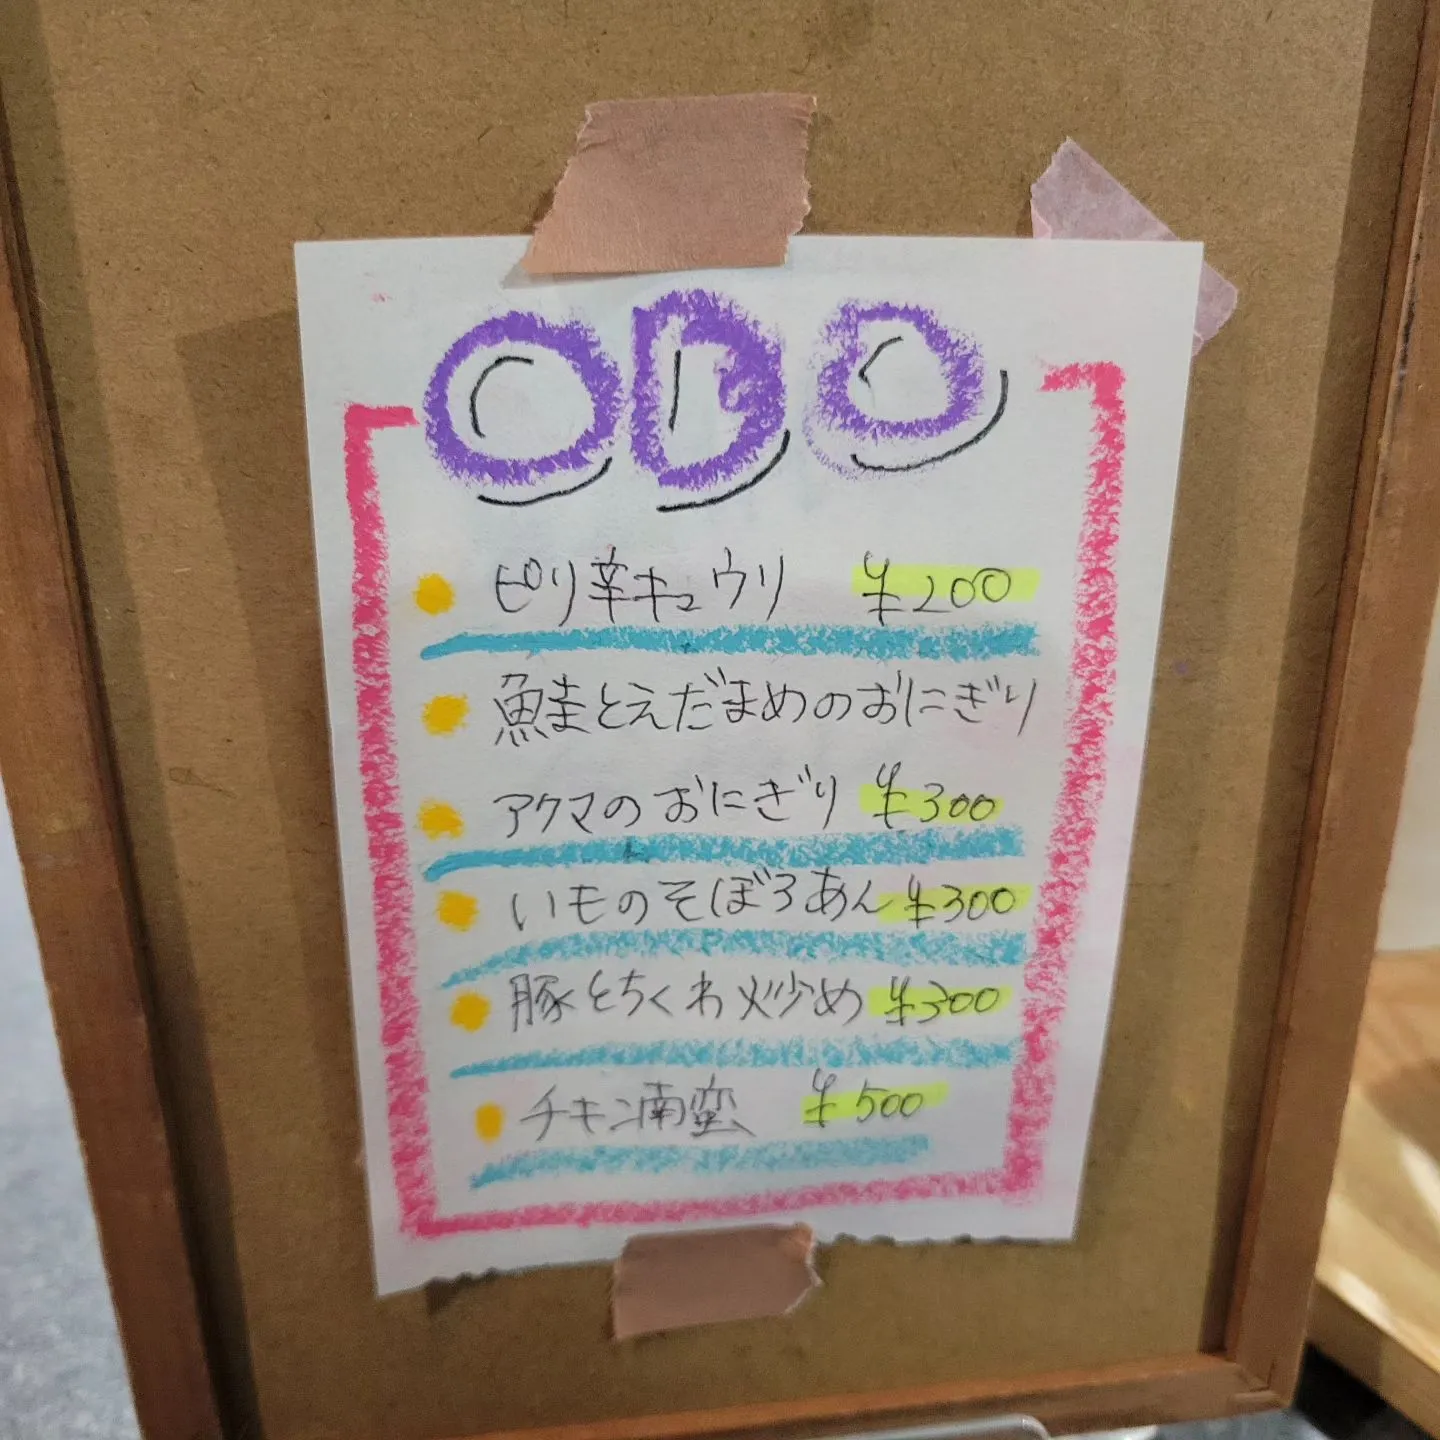 ピリ辛キュウリ ¥200
鮭とえだまめのおにぎり
アクマのおにぎり ¥300
いものそぼろあん ¥300
豚とちくわ炒め ¥300
チキン南蛮 ¥500